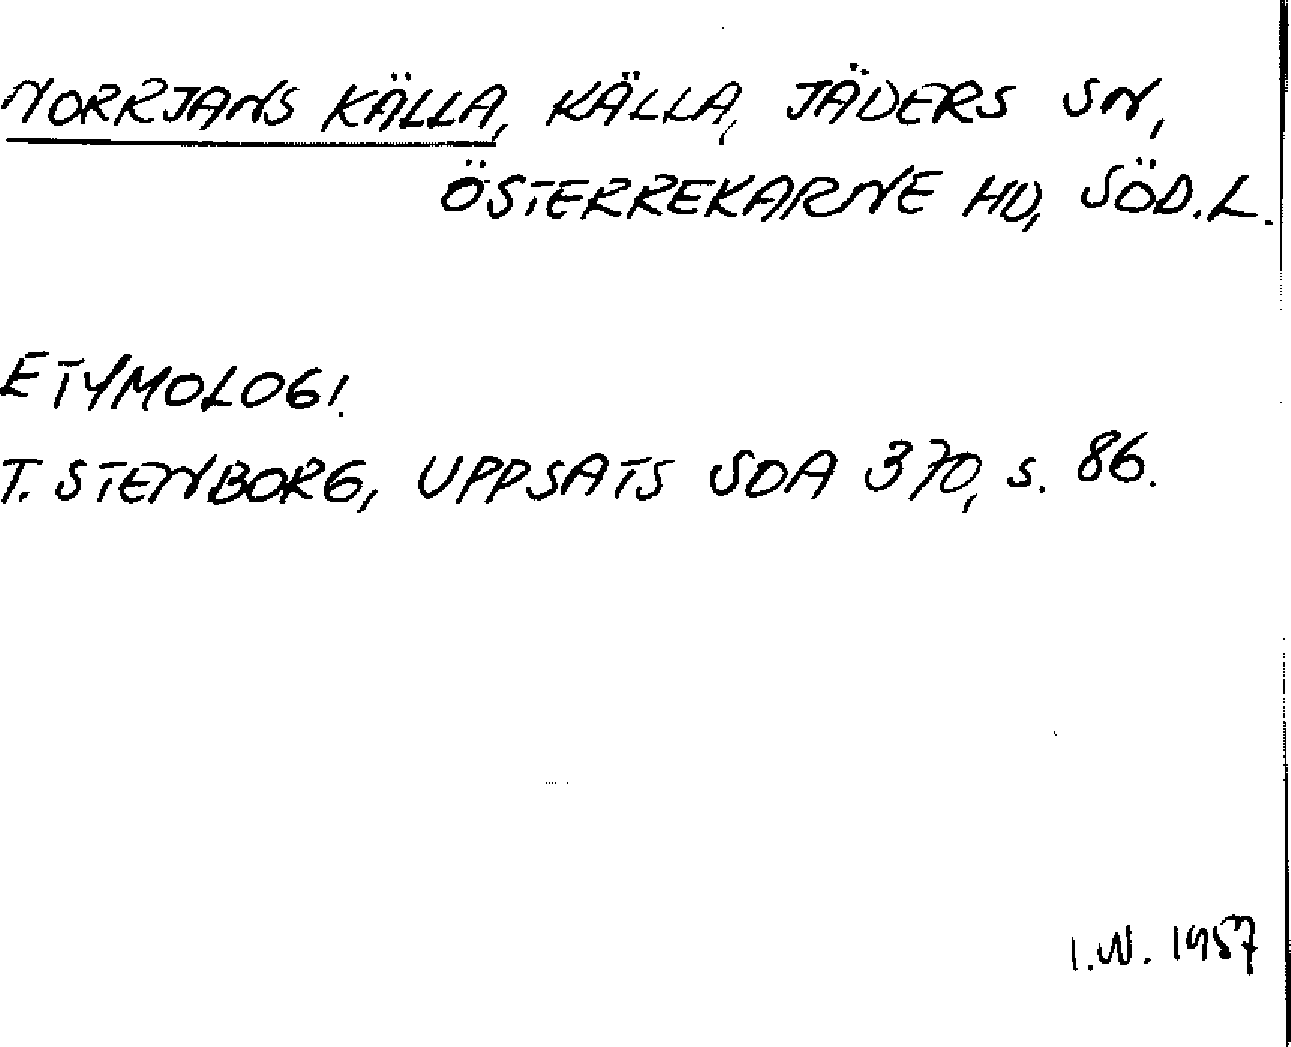 NORRJANS KÄLLA, KÄLLA, JÄDERS SN,
ÖSTERREKARNE HD, SÖD.L.
ETYMOLOGI.
T. STENBORG, UPPSATS SOA 370, s. 86.
I.W. 1957